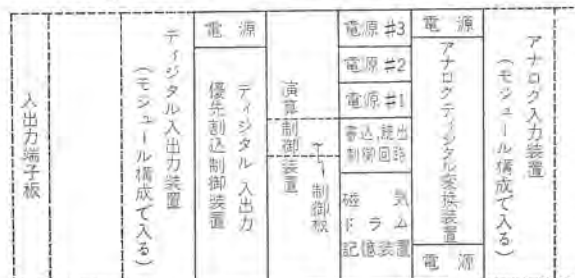 入出力端子板
ディジタル入出力装置
(モジュール構成で入る)
電源
ディジタル入出力
優先割込制御装置
演算制御装置
制御板
電源#3
電源#2
電源#1
書込読出
制御回路
磁気
ドラム
記憶装置
電源
アナログディジタル変換装置
電源
アナログ入力装置
(モジュール構成で入る)